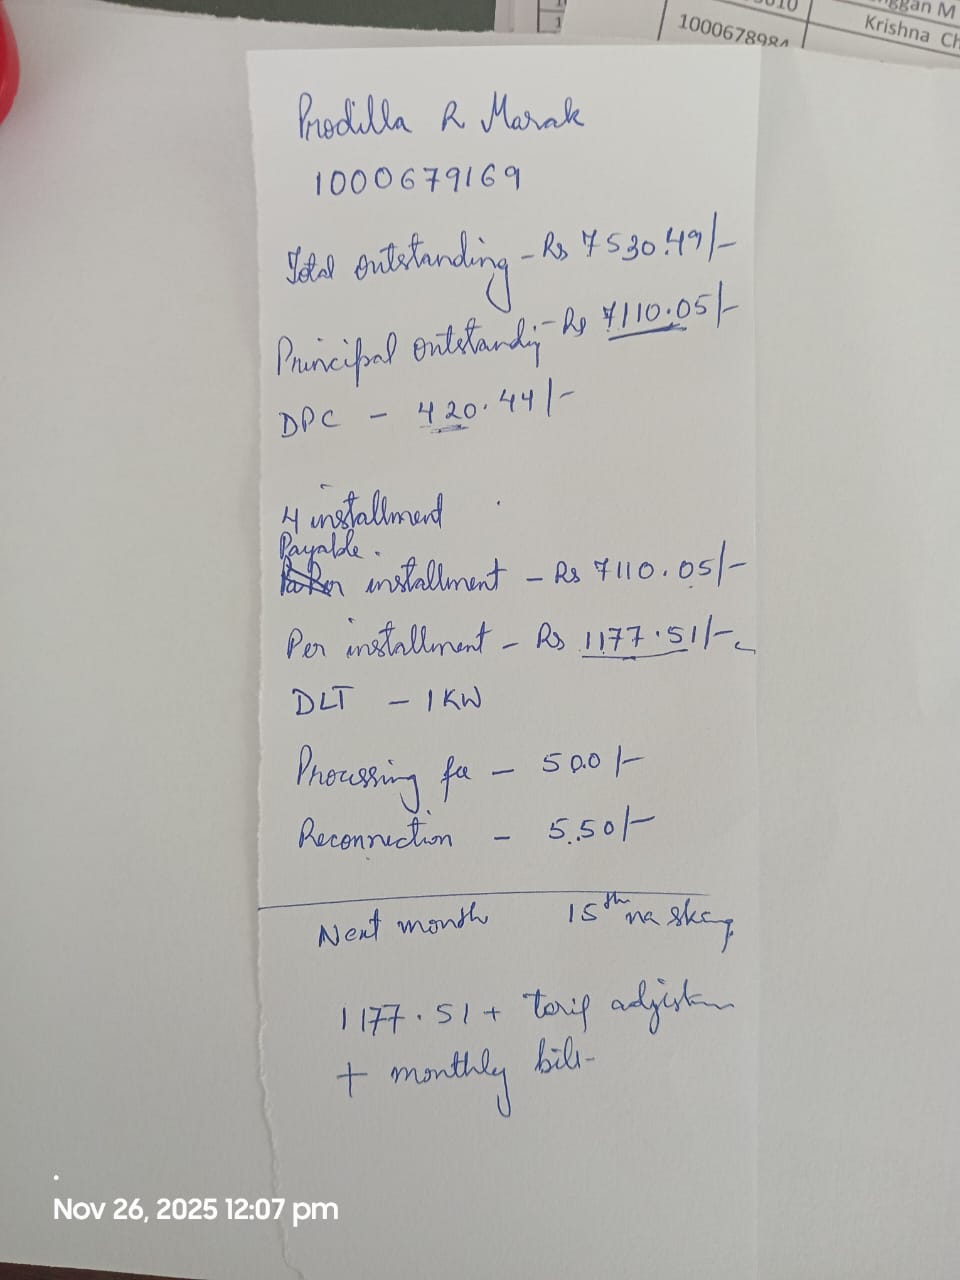 1000678984
Krishna Ch
Prodilla R Marak
1000679169
Total outstanding - Rs 7530.49/-
Principal outstandig - Rs 7110.05/-
DPC - 420.44/-
4 installment
Payable.
installment - Rs 7110.05/-
Per installment - Rs 1177.51/-
DLT - 1 KW
Processing fee - 500/-
Reconnection - 5.50/-
Next month 15th na skang
1177.51 + tarif
+ monthly bill-
Nov 26, 2025 12:07 pm